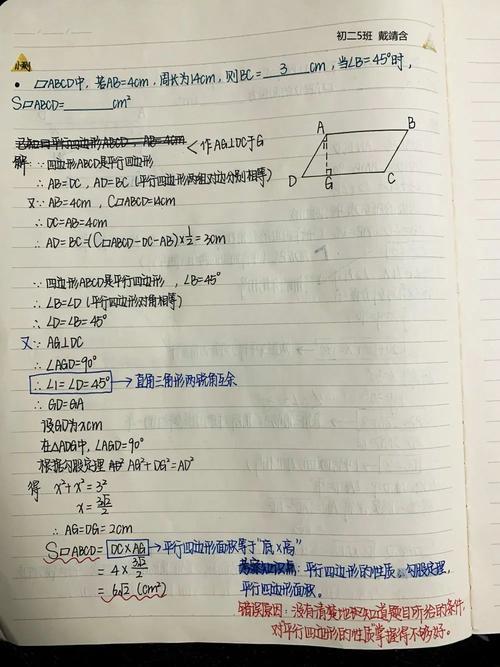 初二5班 戴靖含
小测
• ▱ABCD中，若AB=4cm，周长为14cm，则BC=3cm，当∠B=45°时，
S▱ABCD=______cm²
已知：平行四边形ABCD，AB=4cm
<作AG⊥DC于G
解：∵四边形ABCD是平行四边形
∴AB=DC，AD=BC（平行四边形两组对边分别相等）
又∵AB=4cm，C▱ABCD=14cm
∴DC=AB=4cm
∴AD=BC=(C▱ABCD-DC-AB)×1/2=3cm
A B
D G C
∵四边形ABCD是平行四边形，∠B=45°
∴∠B=∠D（平行四边形对角相等）
∴∠D=∠B=45°
又∵AG⊥DC
∴∠AGD=90°
∴∠1=∠D=45° → 直角三角形两锐角互余
∴GD=GA
设GD为xcm
在△ADG中，∠AGD=90°
根据勾股定理 AG²+DG²=AD²
得 x²+x²=3²
x=3√2/2
∴AG=DG=2cm
S▱ABCD=DC×AG → 平行四边形面积等于"底×高"
=4×3√2/2
=6√2(cm²)
考察知识点：平行四边形的性质、勾股定理，
平行四边形面积。
错误原因：没有清楚地知道题目所给的条件，
对"平行四边形的性质"掌握得不够好。